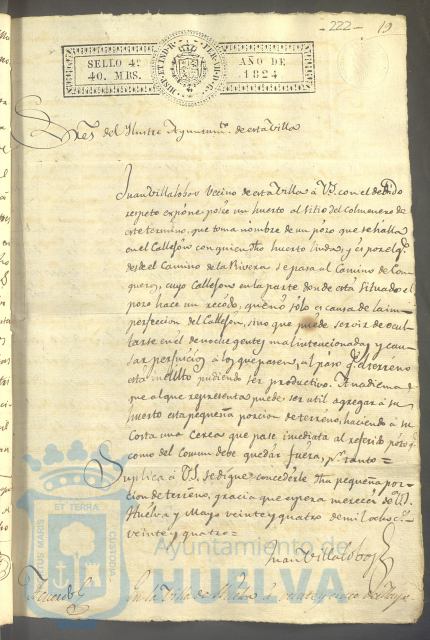 -222- 19
SELLO 4º
40. MRS.
HISP. ET IND. R. FERD. VII. D. G.
AÑO DE
1824
Sres del Ilustre Ayuntamto. de esta Villa
Juan Villalobos vecino de esta Villa á VS. con el devido
respeto expone: posée un huerto al sitio del Colmenero de
este termino, que toma nombre de un pozo que se halla
en el Callejon con quien dho huerto linda, y es por el q.
desde el Camino de la Rivera se pasa al Camino de Con
quero, cuyo Callejon en la parte donde está situado el
pozo hace un recodo, que no solo es causa de la im
perfeccion del Callejon, sino que puede servir de ocul
tarse en él de noche gentes mal intencionadas y cau
sar perjuicios á los que pasen, al paso q. el terreno
esta inculto pudiendo ser productivo. Añadiendo
que al que representa puede ser util agregar á su
huerto esta pequeña porcion de terreno, haciendo á su
Costa una Cerca que pase imediata al referido pozo q.
como del Comun debe quedar fuera, pr. tanto=
Suplica á VS. se digne concederle dha pequeña por
cion de terreno, gracia que espera merecer de VS.
Huelva y Mayo veinte y quatro de mil ochoc.s
veinte y quatro=
Juan Villalobos
En la Villa de Huelva á veinte y cinco de Mayo
PORTUS MARIS ET TERRAE CUSTODIA
Ayuntamiento de
HUELVA